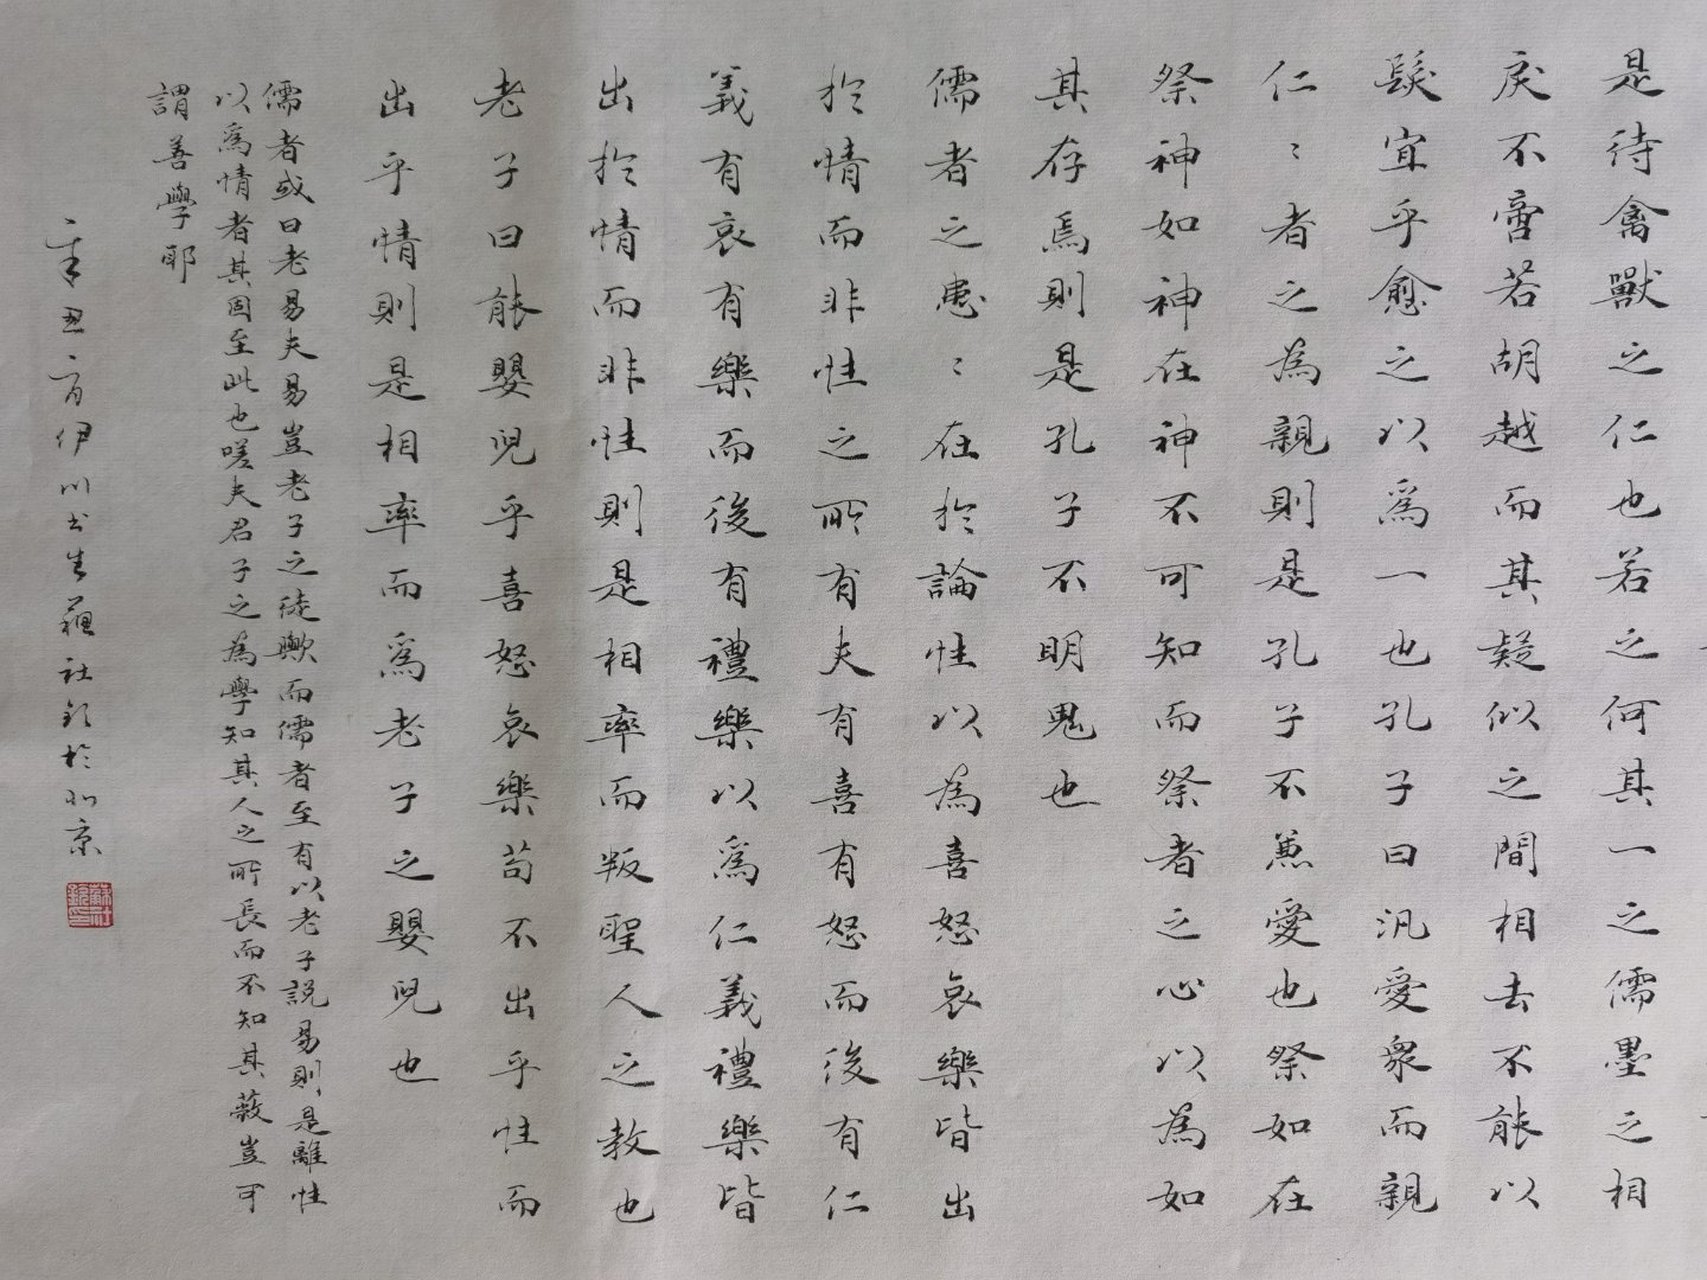 是待禽獸之仁也若之何其一之儒墨之相
戾不啻若胡越而其疑似之間相去不能以
髮宜乎愈之以爲一也孔子曰汎愛衆而親
仁〻者之為親則是孔子不兼愛也祭如在
祭神如神在神不可知而祭者之心以為如
其存焉則是孔子不明鬼也
儒者之患〻在於論性以為喜怒哀樂皆出
於情而非性之所有夫有喜有怒而後有仁
義有哀有樂而後有禮樂以爲仁義禮樂皆
出於情而非性則是相率而叛聖人之教也
老子曰能嬰兒乎喜怒哀樂苟不出乎性而
出乎情則是相率而爲老子之嬰兒也
儒者或曰老易夫易豈老子之徒歟而儒者至有以老子説易則是離性
以爲情者其固至此也嗟夫君子之為學知其人之所長而不知其蔽豈可
謂善學耶
辛丑 伊川书生蘓社钦於北京